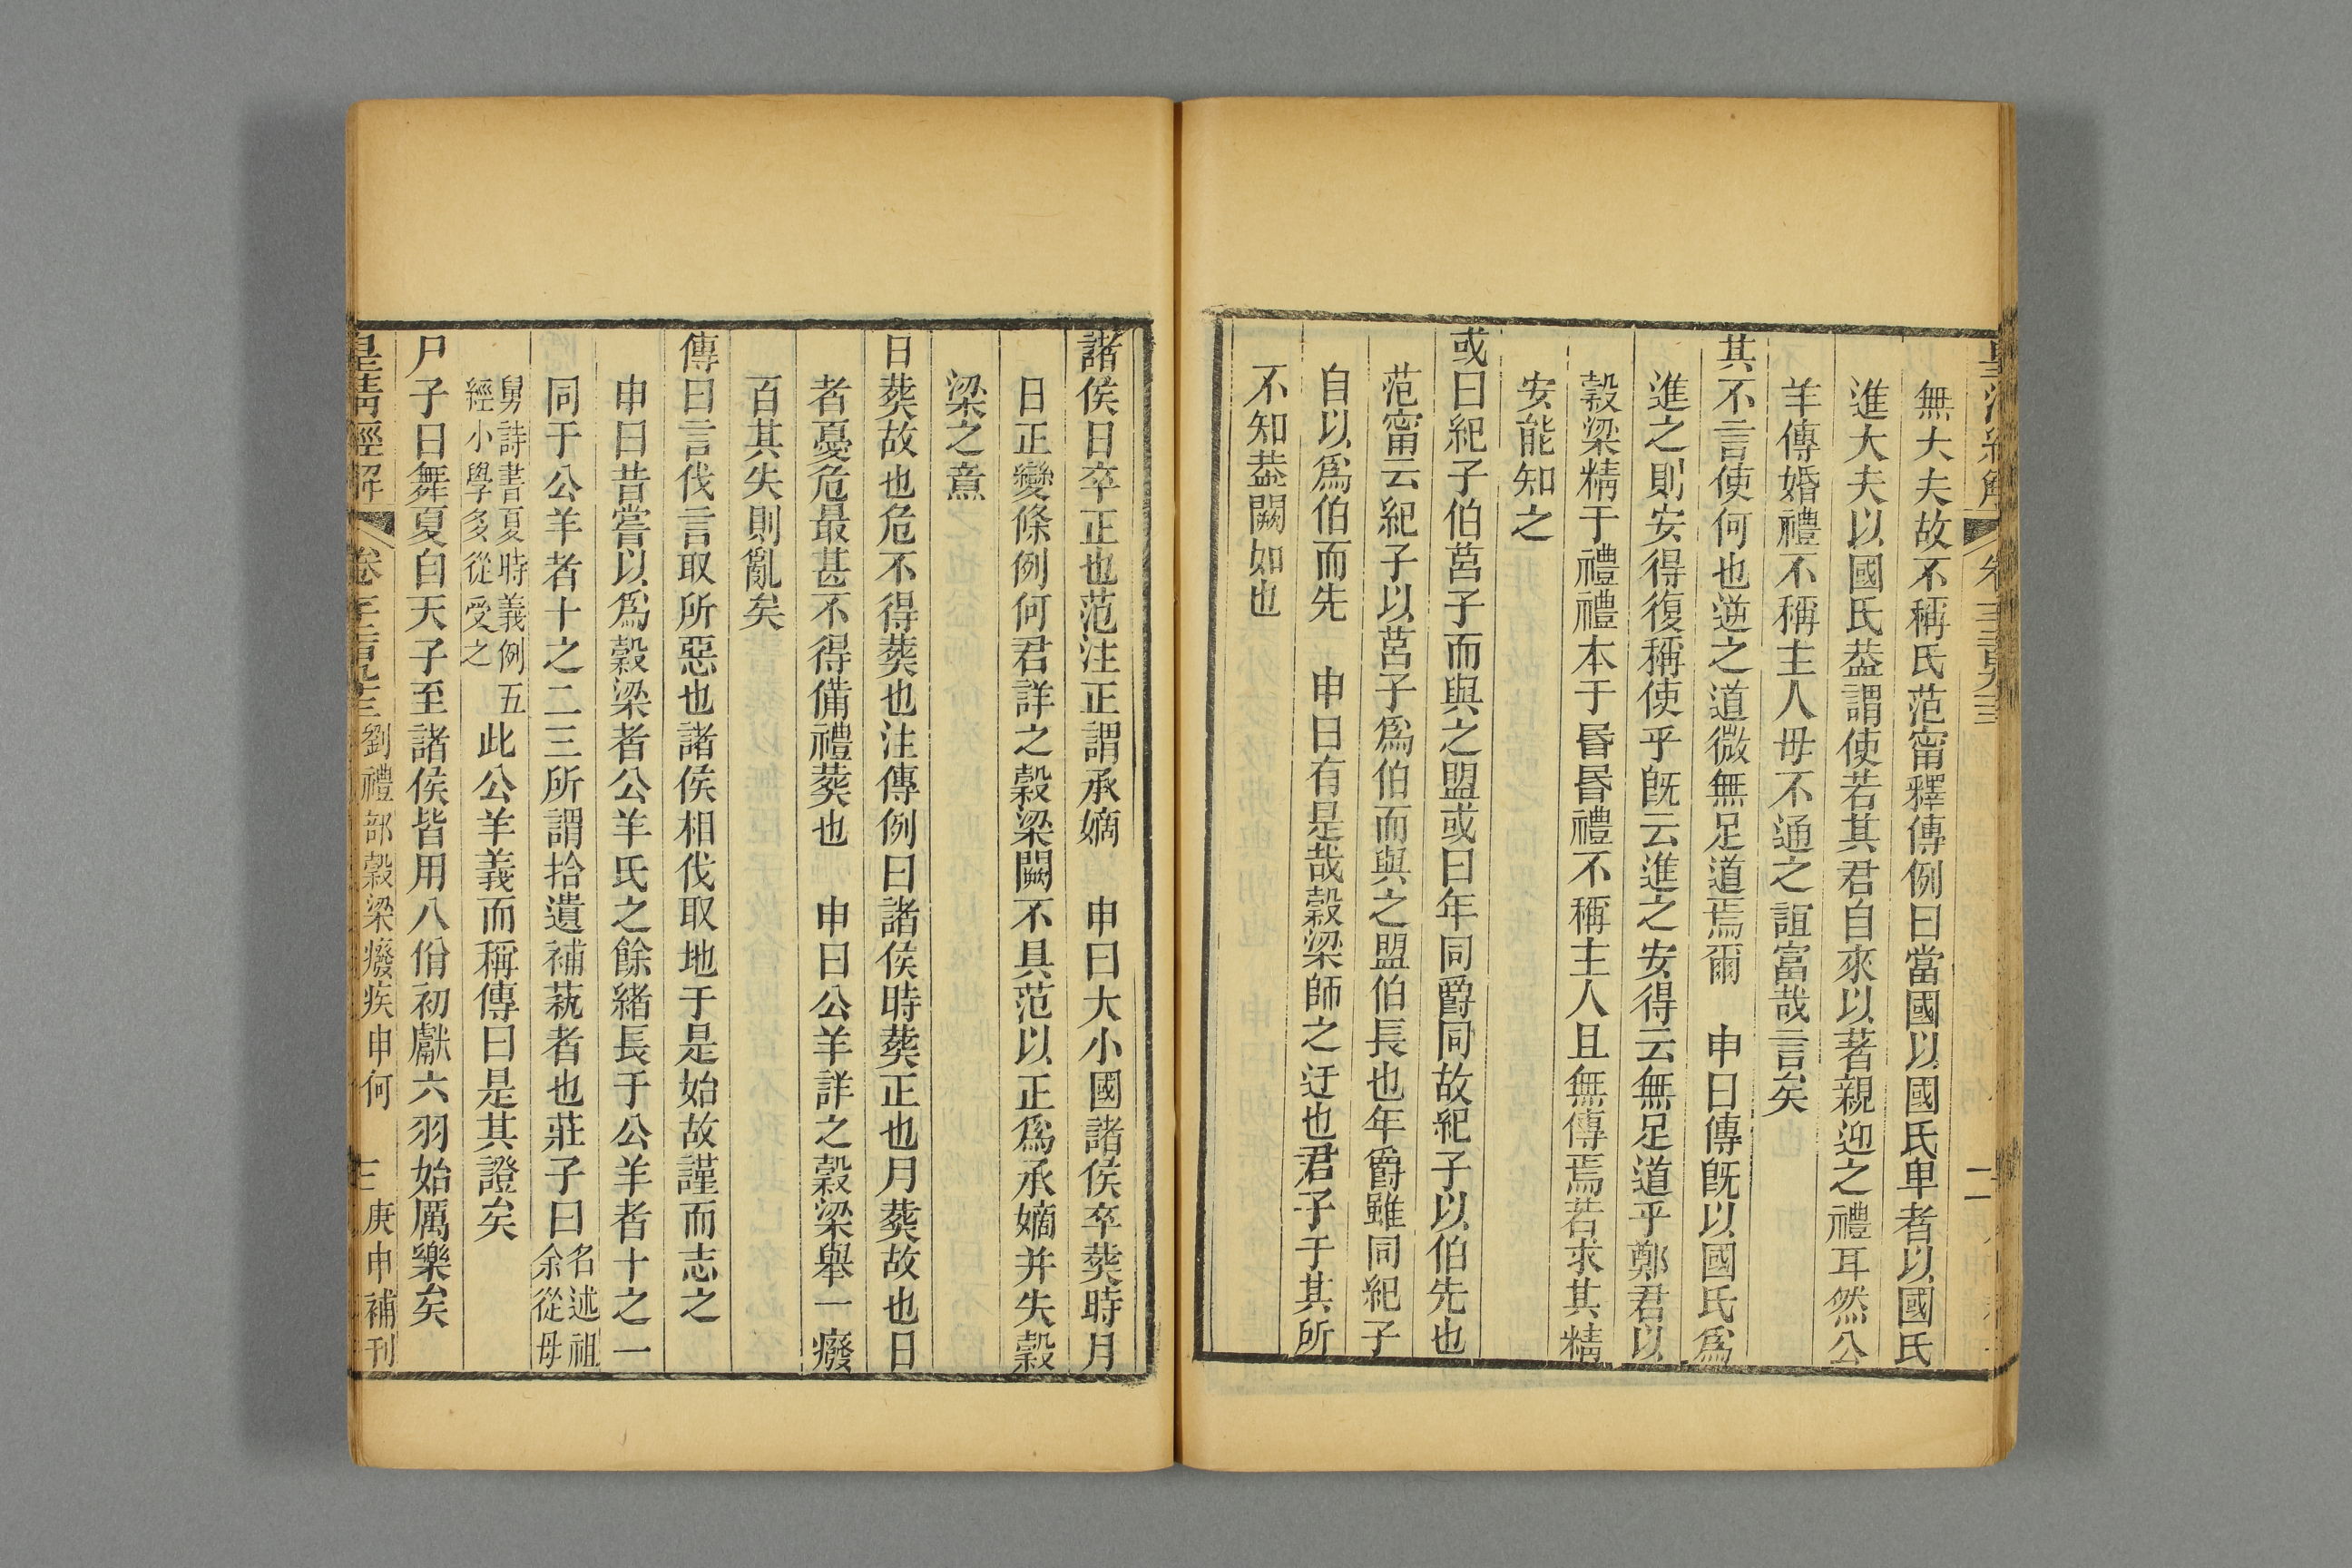 無大夫故不稱氏范甯釋傳例曰當國以國氏卑者以國氏
進大夫以國氏葢謂使若其君自來以著親迎之禮耳然公
羊傳婚禮不稱主人母不通之誼富哉言矣
其不言使何也逆之道微無足道焉爾　申曰傳旣以國氏爲
進之則安得復稱使乎旣云進之安得云無足道乎鄭君以
穀梁精于禮禮本于昬昬禮不稱主人且無傳焉若求其精
安能知之
或曰紀子伯莒子而與之盟或曰年同爵同故紀子以伯先也
范甯云紀子以莒子爲伯而與之盟伯長也年爵雖同紀子
自以爲伯而先　申曰有是哉穀梁師之迂也君子于其所
不知葢闕如也
諸侯日卒正也范注正謂承嫡　申曰大小國諸侯卒葬時月
日正變條例何君詳之穀梁闕不具范以正爲承嫡并失穀
梁之意
日葬故也危不得葬也注傳例曰諸侯時葬正也月葬故也日
者憂危最甚不得備禮葬也　申曰公羊詳之穀梁舉一癈
百其失則亂矣
傳曰言伐言取所惡也諸侯相伐取地于是始故謹而志之
申曰昔嘗以爲穀梁者公羊氏之餘緒長于公羊者十之一
同于公羊者十之二三所謂拾遺補蓺者也莊子曰名述祖余從母
舅詩書夏時義例五經小學多從受之此公羊義而稱傳曰是其證矣
尸子曰舞夏自天子至諸侯皆用八佾初獻六羽始厲樂矣
皇清經解　卷一千二百九十三　劉禮部穀梁癈疾申何　三　庚申補刊